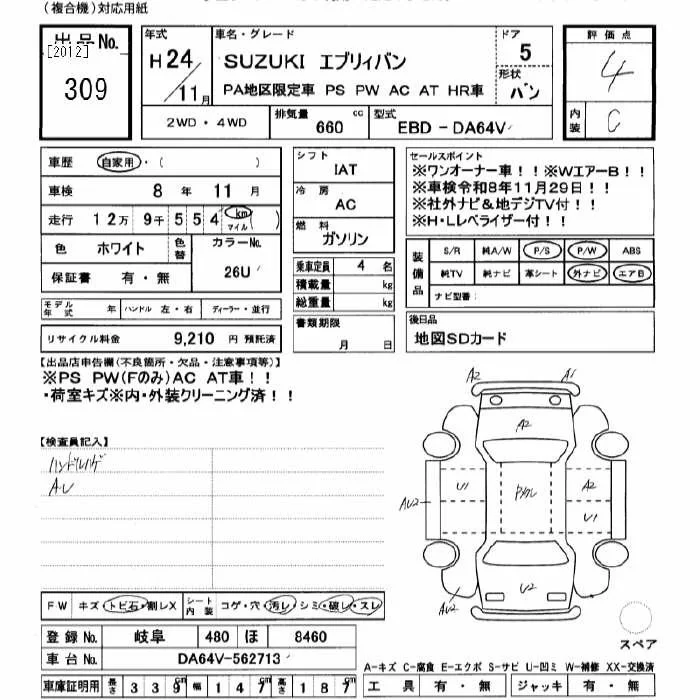 (複合機)対応用紙
出品No. [2012] 309
年式 H24/11月
車名・グレード SUZUKI エブリィバン
PA地区限定車 PS PW AC AT HR車
ドア 5
形状 バン
評価点 4
内装 C
2WD・4WD
排気量 660 cc
型式 EBD-DA64V
車歴 自家用・( )
車検 8年 11月
走行 12万 9千 5 5 4 km マイル
色 ホワイト 色替 カラーNo. 26U
保証書 有・無
シフト IAT
冷房 AC
燃料 ガソリン
乗車定員 4 名
積載量 kg
総重量 kg
書類期限 月 日
セールスポイント
※ワンオーナー車!!※WエアーB!!
※車検令和8年11月29日!!
※社外ナビ&地デジTV付!!
※H・Lレベライザー付!!
装備品 S/R 純A/W P/S P/W ABS
純TV 純ナビ 革シート 外ナビ エアB
ナビ型番:
モデル年式 年 ハンドル 左・右 ディーラー・並行
リサイクル料金 9,210 円 預託済
後日品
地図SDカード
【出品店申告欄(不良箇所・欠品・注意事項等)】
※PS PW(Fのみ)AC AT車!!
・荷室キズ※内・外装クリーニング済!!
【検査員記入】
ハンドルハゲ
AU
A2 A1
A2
U1 Pメクレ A2
AU2 U1
U2
AU2 A2
スペア
FW キズ・トビ石・割レX シート内装 コゲ・穴・汚レ・シミ・破レ・スレ
登録No. 岐阜 480 ほ 8460
車台No. DA64V-562713
A-キズ C-腐食 E-エクボ S-サビ U-凹ミ W-補修 XX-交換済
車庫証明用 長さ 339cm 幅 147cm 高さ 187cm
工具 有・無 ジャッキ 有・無